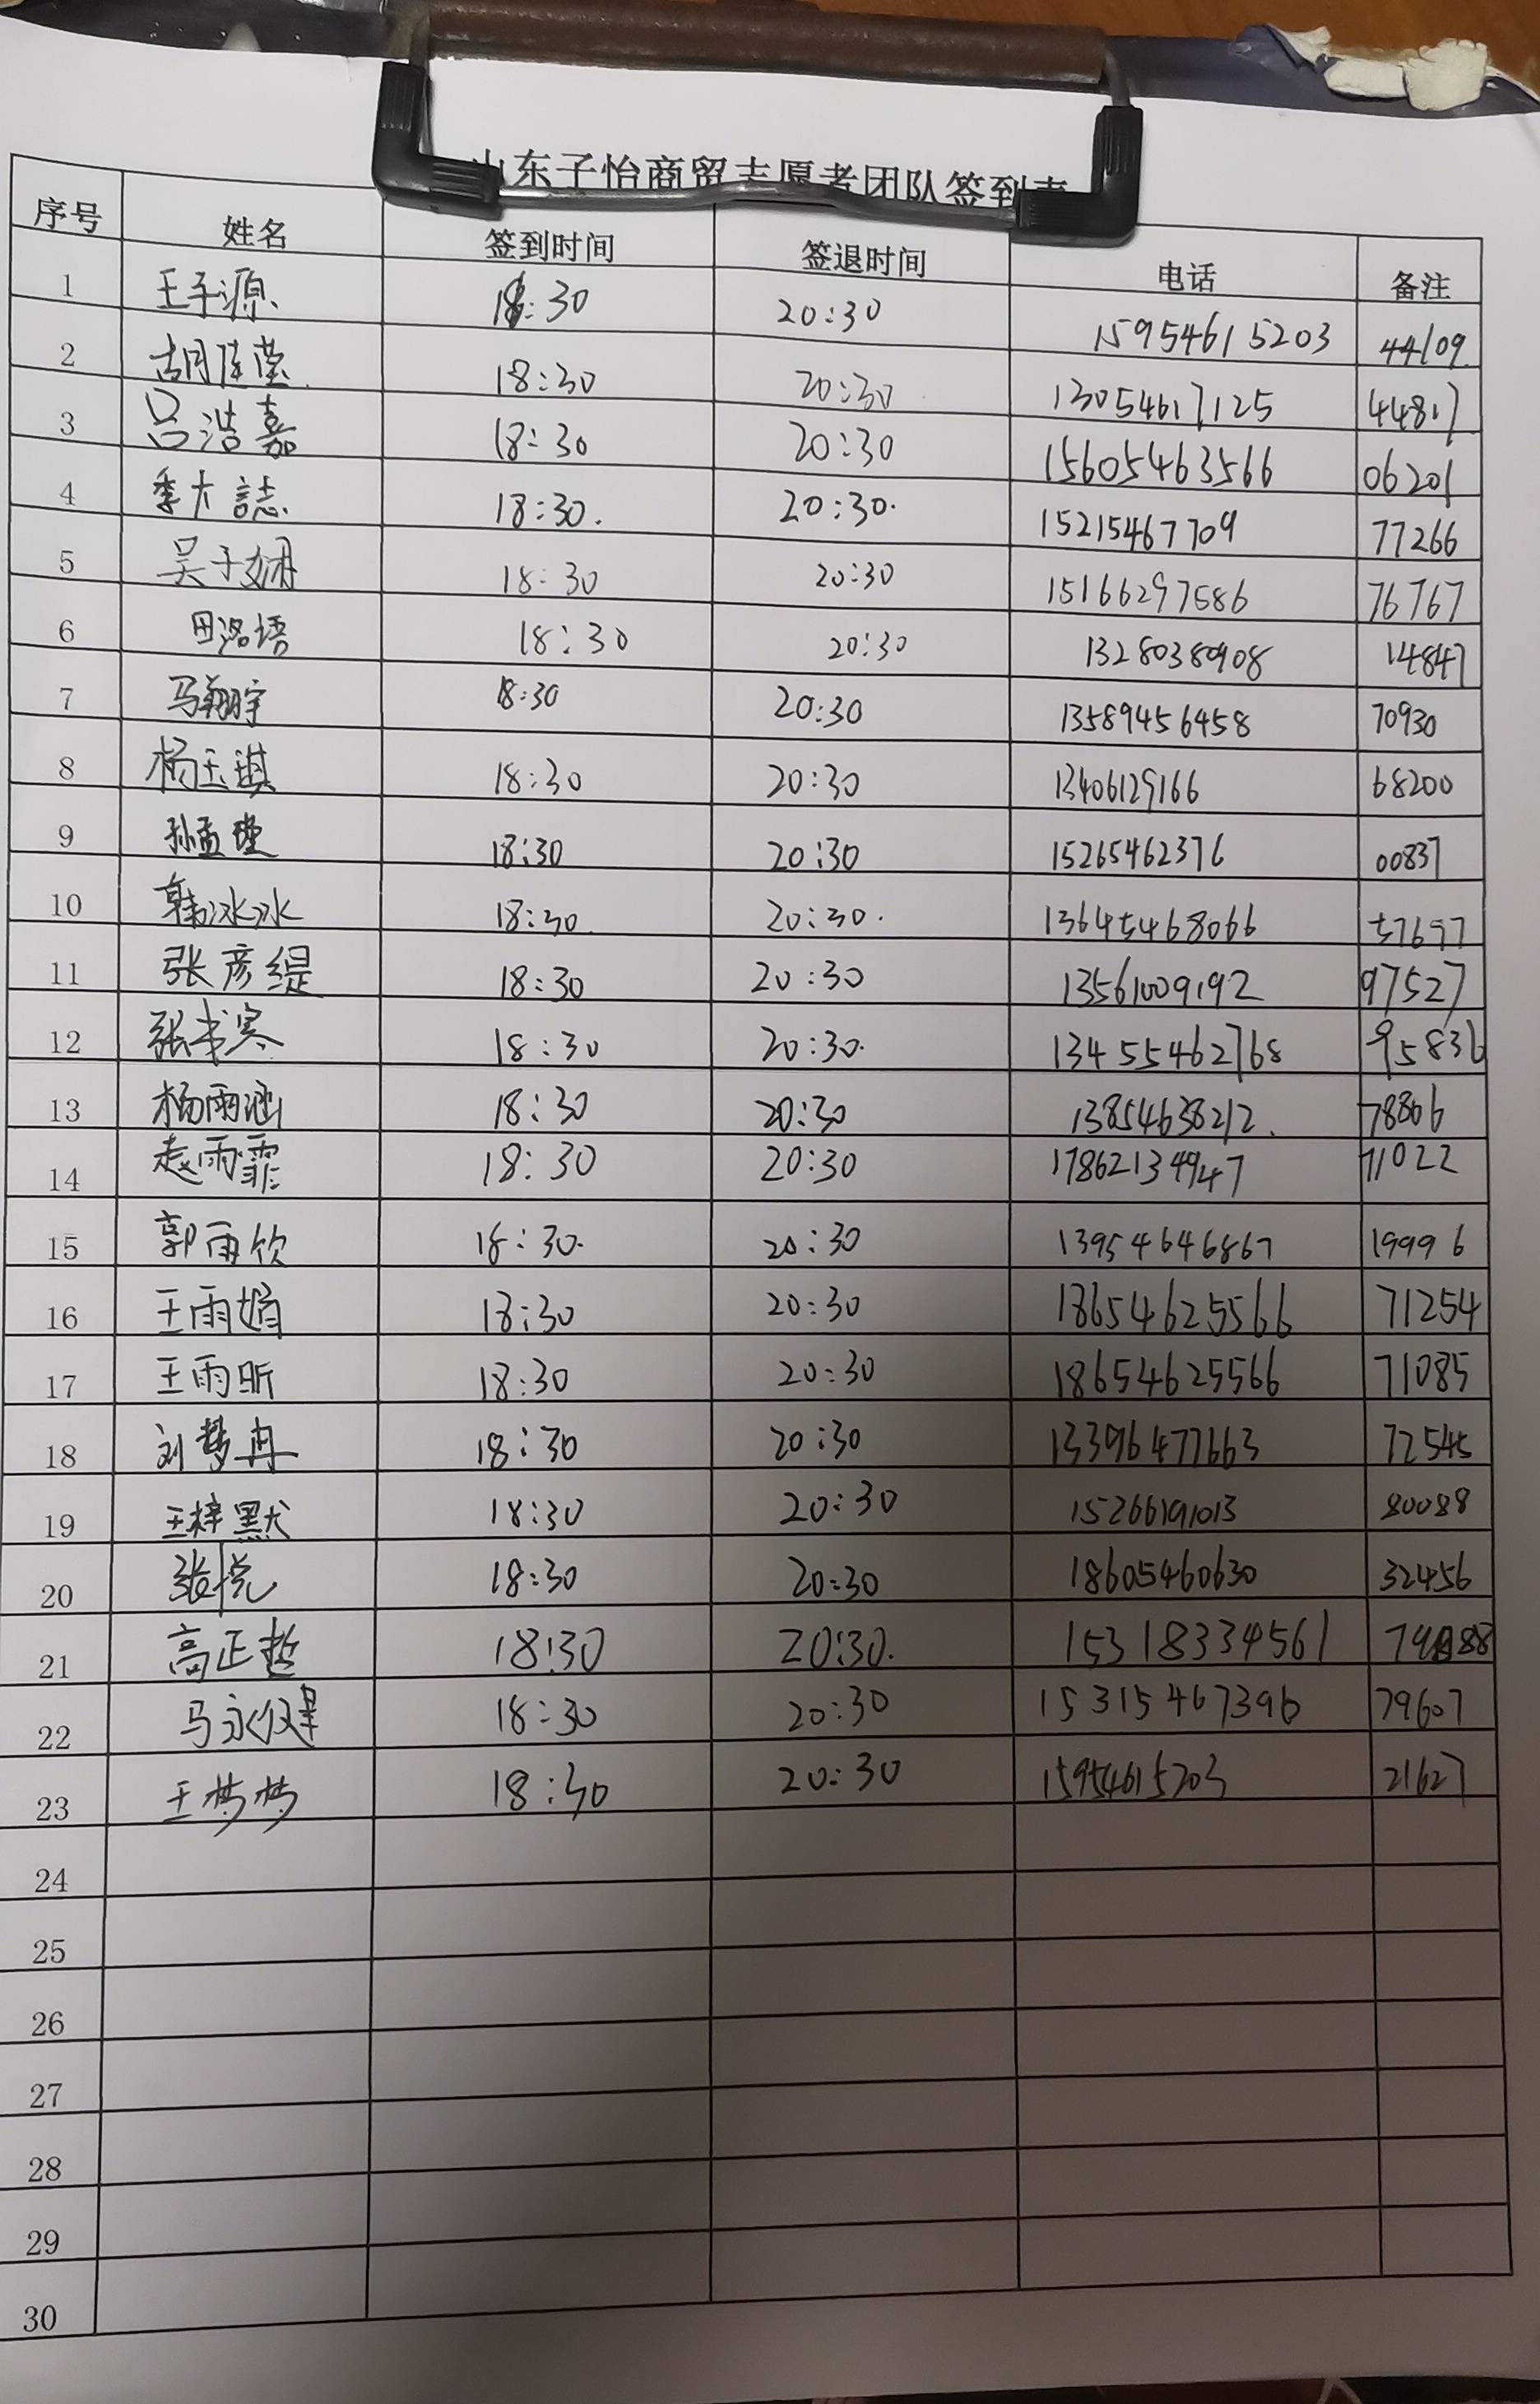 山东子怡商贸志愿者团队签到表
序号 姓名 签到时间 签退时间 电话 备注
1 王子源 18:30 20:30 15954615203 44109
2 胡佳莹 18:30 20:30 13054617125 44817
3 吕浩嘉 18:30 20:30 15605463566 06201
4 季大誌 18:30. 20:30. 15215467709 77266
5 吴子娴 18:30 20:30 15166297586 76767
6 田洛语 18:30 20:30 13280380908 14847
7 马翔宇 18:30 20:30 13589456458 70930
8 杨玉琪 18:30 20:30 13406129166 68200
9 孙孟瑾 18:30 20:30 15265462376 00837
10 韩冰冰 18:30 20:30. 13645468066 57697
11 张彦缇 18:30 20:30 13561009192 97527
12 张书寒 18:30 20:30. 13455462768 95836
13 杨雨涵 18:30 20:30 13854638212. 78806
14 赵雨霏 18:30 20:30 17862134947 71022
15 郭雨欣 18:30. 20:30 13954646867 19996
16 王雨娟 18:30 20:30 18654625566 71254
17 王雨昕 18:30 20:30 18654625566 71085
18 刘梦冉 18:30 20:30 13396477663 72545
19 王梓默 18:30 20:30 15266191013 80088
20 张悦 18:30 20:30 18605460630 32456
21 高正哲 18:30 20:30. 15318334561
22 马永健 18:30 20:30 15315467396 79607
23 王梦梦 18:30 20:30 15954615203 21627
24
25
26
27
28
29
30